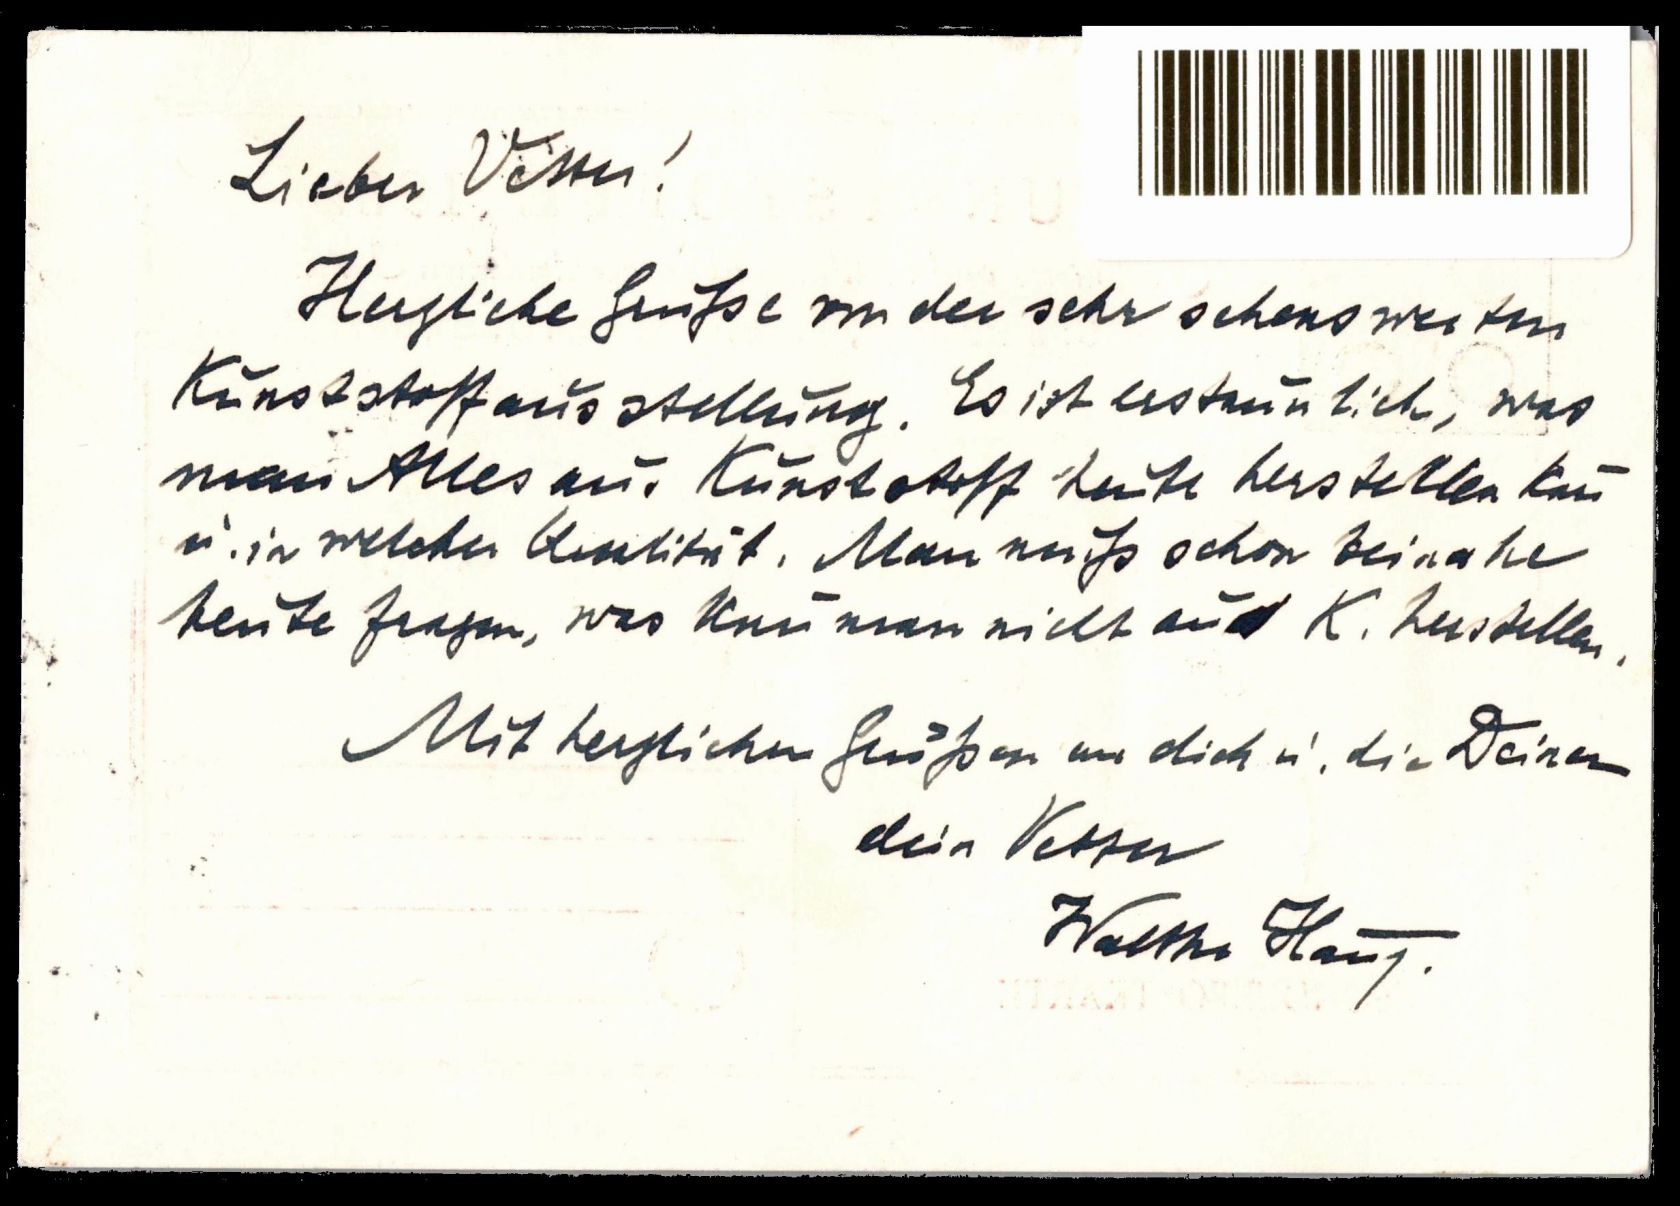 Lieber Vetter!
Herzliche Grüße von der sehr sehenswerten
Kunststoffausstellung. Es ist erstaunlich, was
man Alles aus Kunststoff heute herstellen kann
u. in welcher Qualität. Man muß schon beinahe
heute fragen, was kann man nicht aus K. herstellen.
Mit herzlichen Grüßen an dich u. die Deinen
dein Vetter
Walther Haug.